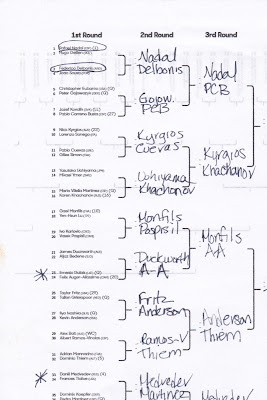 1st Round 2nd Round 3rd Round
1 Rafael Nadal (ESP) (1)
2 Hugo Dellien (BOL)
Nadal
3 Federico Delbonis (ARG)
4 Joao Sousa (POR)
Delbonis
Nadal
5 Christopher Eubanks (USA) (Q)
6 Peter Gojowczyk (GER) (Q)
Gojow.
7 Jozef Kovalik (SVK)
8 Pablo Carreno Busta (ESP) (27)
PCB
PCB
9 Nick Kyrgios (AUS) (23)
10 Lorenzo Sonego (ITA)
Kyrgios
11 Pablo Cuevas (URU)
12 Gilles Simon (FRA)
Cuevas
Kyrgios
13 Yasutaka Uchiyama (JPN)
14 Mikael Ymer (SWE)
Uchiyama
15 Mario Vilella Martinez (ESP) (Q)
16 Karen Khachanov (RUS) (16)
Khachanov
Khachanov
17 Gael Monfils (FRA) (10)
18 Yen-Hsun Lu (TPE)
Monfils
19 Ivo Karlovic (CRO)
20 Vasek Pospisil (CAN)
Pospisil
Monfils
21 James Duckworth (AUS)
22 Aljaz Bedene (SLO)
Duckworth
23 Ernests Gulbis (LAT) (Q)
24 Felix Auger-Aliassime (CAN) (20)
A-A
AA
25 Taylor Fritz (USA) (29)
26 Tallon Griekspoor (NED) (Q)
Fritz
27 Ilya Ivashka (BLR) (Q)
28 Kevin Anderson (RSA)
Anderson
Anderson
29 Alex Bolt (AUS) (WC)
30 Albert Ramos-Vinolas (ESP)
Ramos-V
31 Adrian Mannarino (FRA)
32 Dominic Thiem (AUT) (5)
Thiem
Thiem
33 Daniil Medvedev (RUS) (4)
34 Frances Tiafoe (USA)
Medvedev
35 Dominik Koepfer (GER)
Martinez
Medvedev